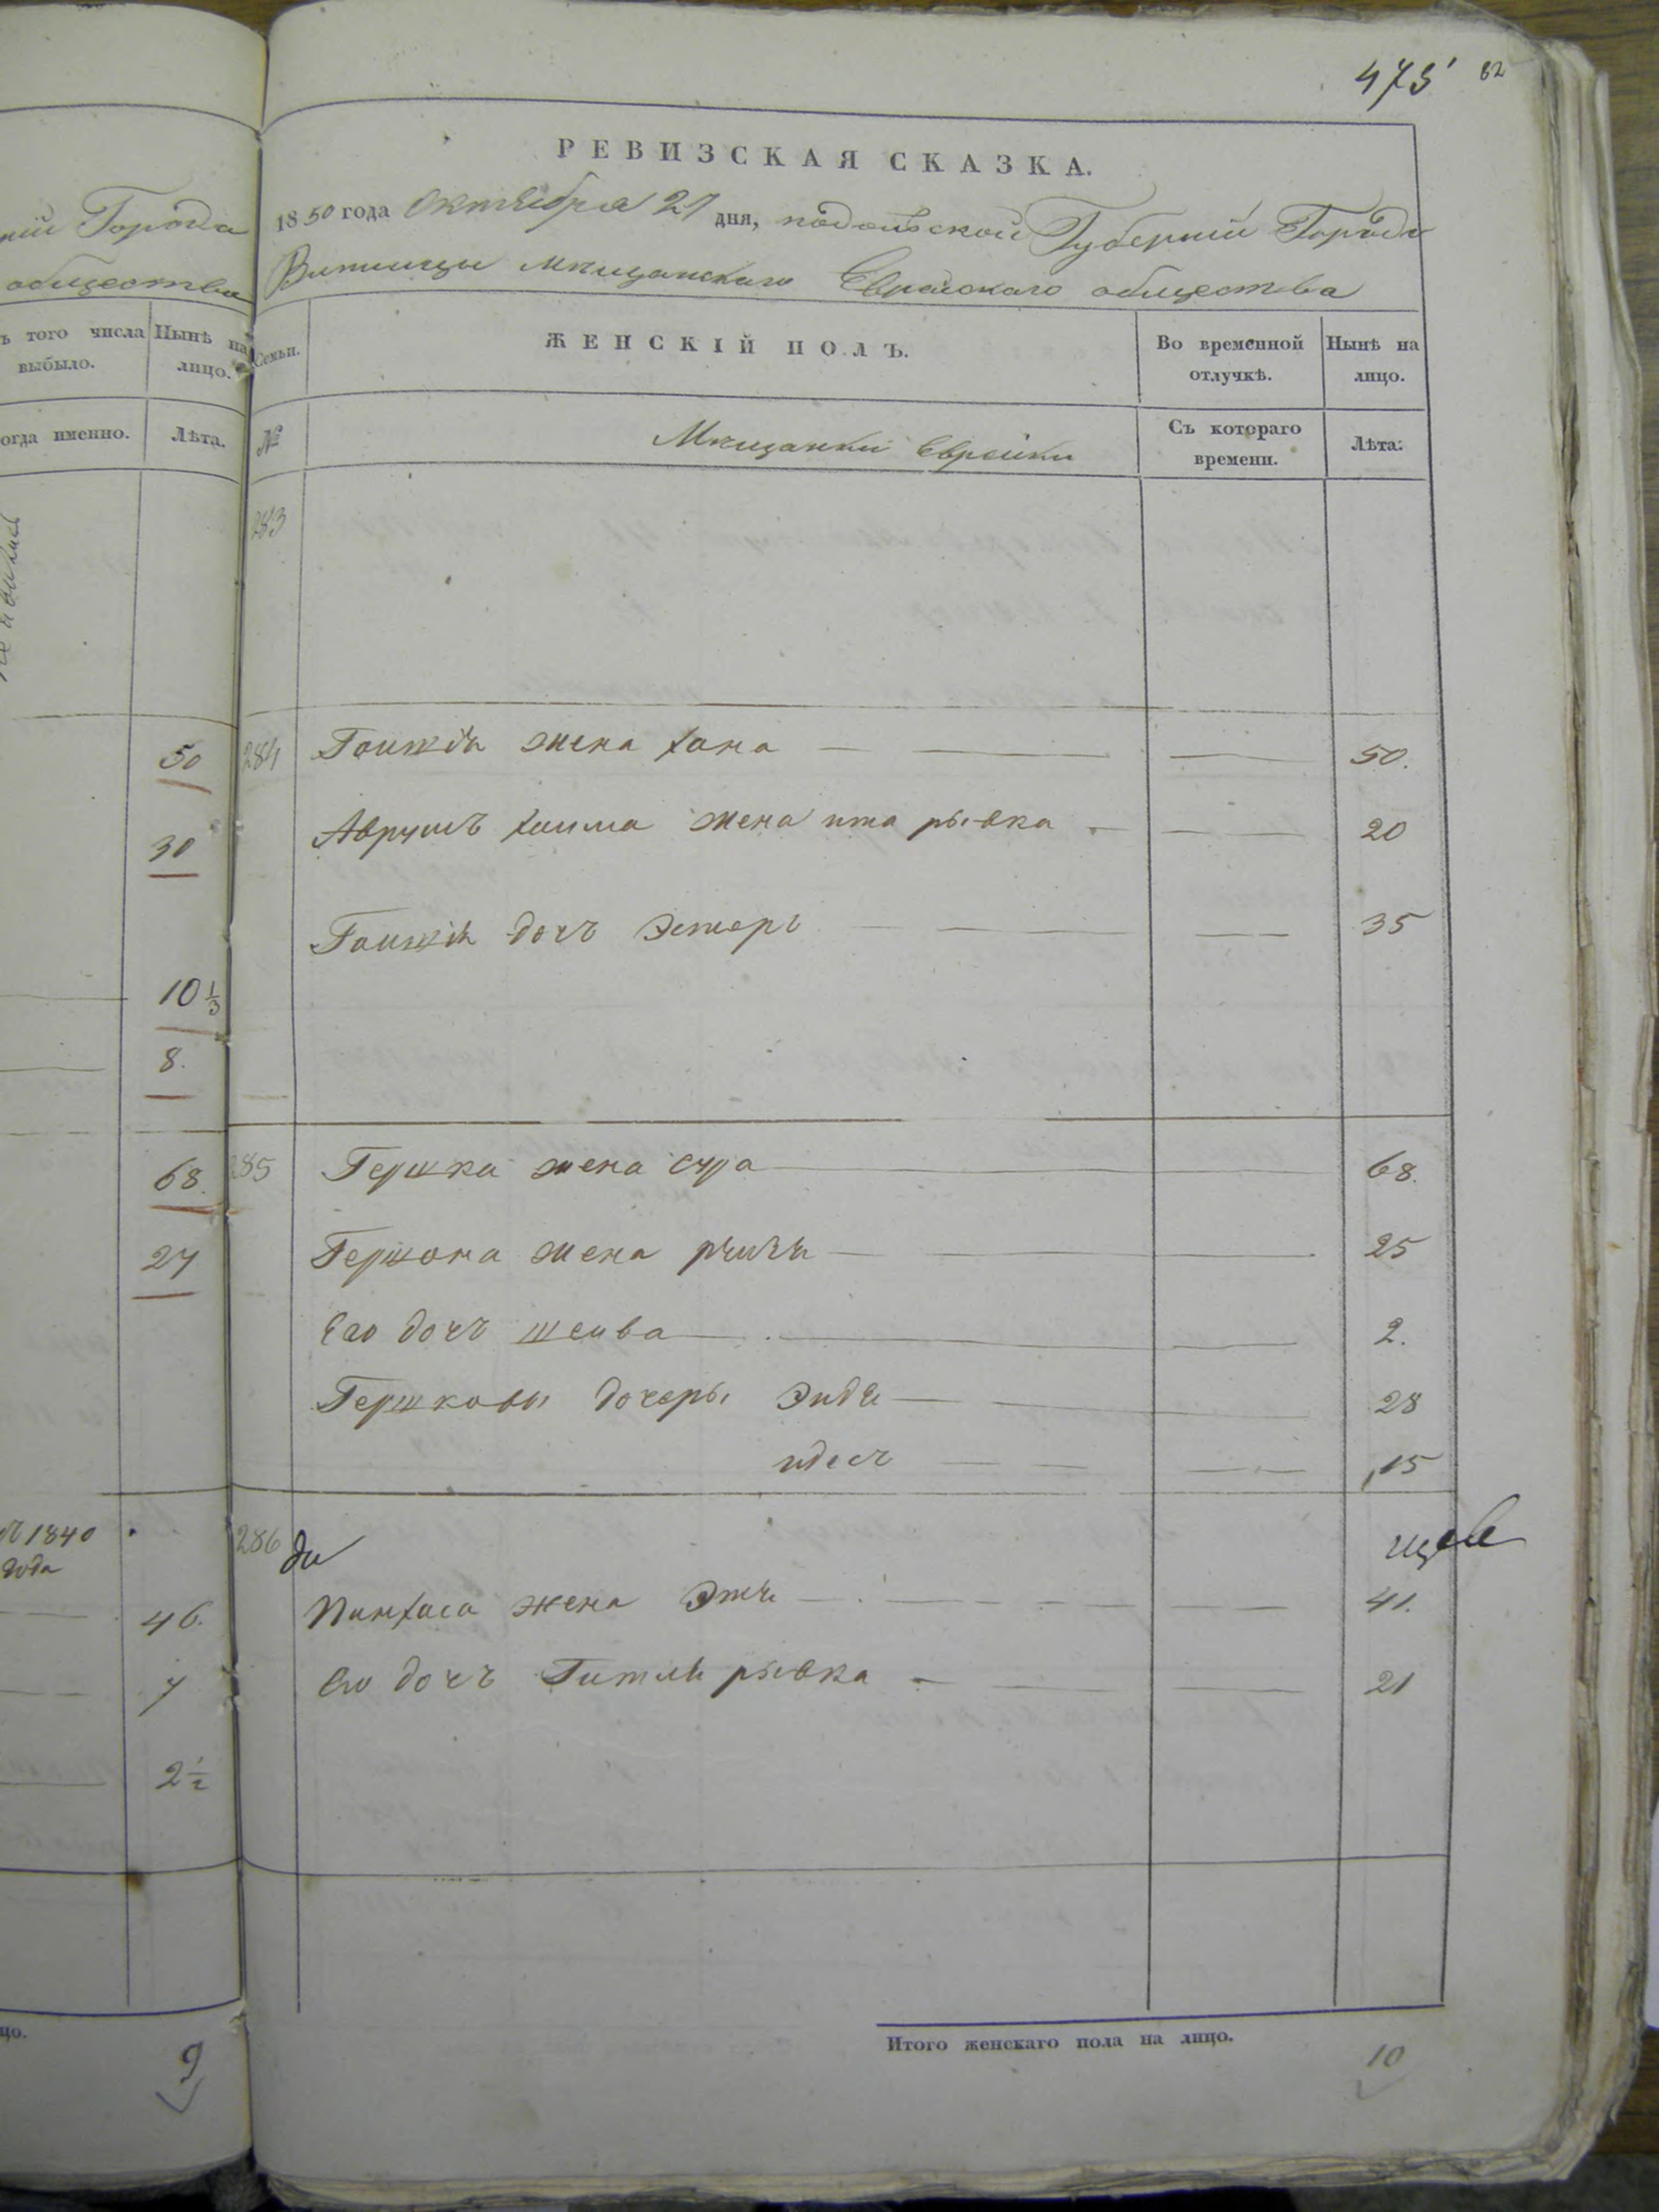 475 82
РЕВИЗСКАЯ СКАЗКА.
1850 года Октября 27 дня, подольской Губерніи Города
Винницы мѣщанскаго Еврейскаго общества
Города
общества
ъ того числа выбыло.
Нынѣ на лицо.
огда именно.
Лѣта.
Семьи.
ЖЕНСКІЙ ПОЛЪ.
Во временной отлучкѣ.
Нынѣ на лицо.
№
Мѣщанки Еврейки
Съ котораго времени.
Лѣта:
283
50
284
жена хана 50.
30
Аврумъ хаима жена ита рывка 20
дочъ Эстеръ 35
10 1/3
8.
68.
285
Гершка жена сура 68.
27
Гершона жена 25
Его дочъ шейва 2.
Гершковы дочеры Эидя 28
идесъ 15
1840
года
286
46.
Пинхаса жена Этя 41.
7
Его дочъ Гитля рывка 21
2 1/2
цо.
9
Итого женскаго пола на лицо.
10